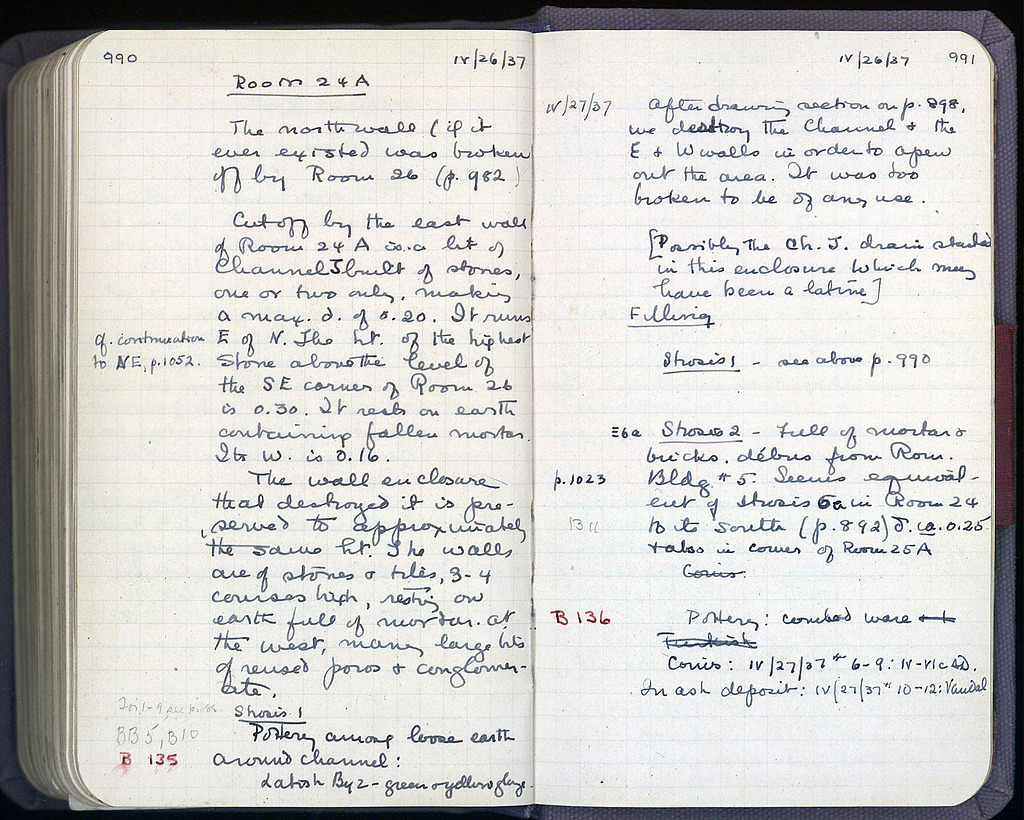 990
IV/26/37
Room 24A
The north wall (if it
ever existed was broken
off by Room 26 (p. 982)
Cut off by the east wall
of Room 24A is a bit of
Channel J built of stones,
one or two only, making
a max. d. of 0.20. It runs
cf. continuation
to NE, p. 1052.
E of N. The ht. of the highest
stone above the level of
the SE corner of Room 26
is 0.30. It rests on earth
containing fallen mortar.
Its W. is 0.16.
The wall enclosure
that destroyed it is pre-
served to approximately
the same ht. The walls
are of stones & tiles, 3-4
courses high, resting on
earth full of mortar. At
the west, many large bits
of reused poros & conglomer-
ate.
Strosis 1
BB5, B10
Pottery among loose earth
B 135
around channel:
Latish Byz - green & yellow glaze
IV/26/37
991
IV/27/37
After drawing section on p. 898,
we destroy the Channel & the
E & W walls in order to open
out the area. It was too
broken to be of any use.
[Possibly the Ch. J. drain started
in this enclosure which may
have been a latrine]
Filling
Strosis 1 - see above p. 990
Σ6a
Strosis 2 - Full of mortar &
bricks, débris from Rom.
p. 1023
Bldg. # 5. Seems equival-
ent of strosis 6a in Room 24
B11
to its south (p. 892) d. ca. 0.25
& also in corner of Room 25A
Coins:
B 136
Pottery: combed ware
Turkish
Coins: IV/27/37 # 6-9: IV-VI c AD.
In ash deposit: IV/27/37 # 10-12: Vandal